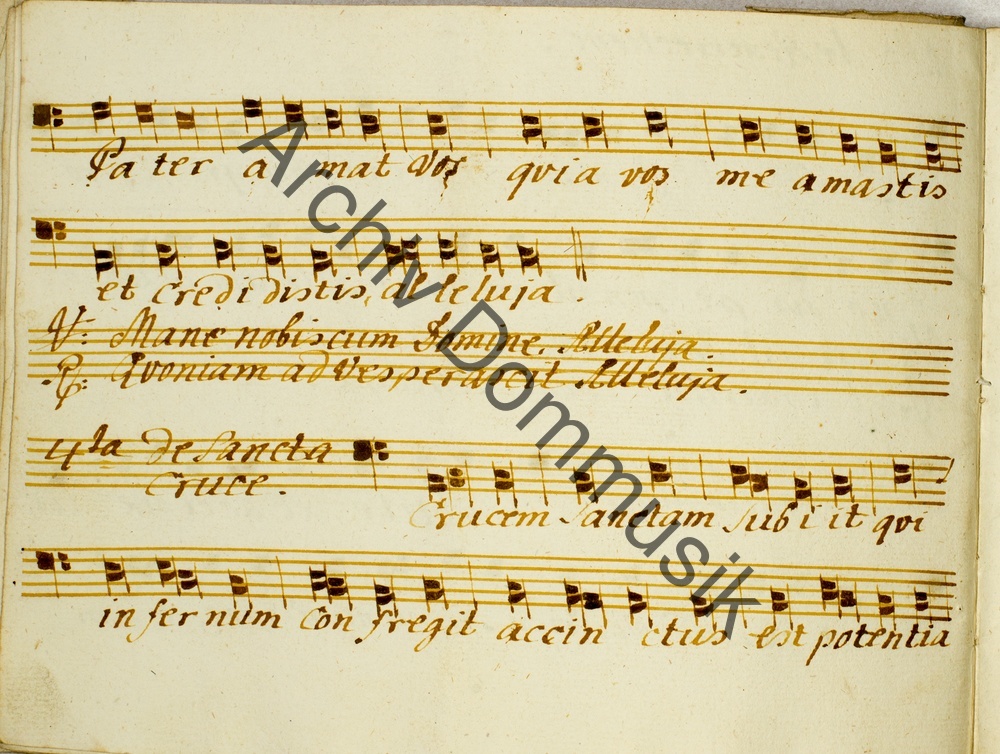 Pa ter a mat vos qvi a vos me amastis
et credi distis, al le luja .
V: Mane nobiscum Domine. Alleluja .
R: Qvoniam ad vesperascit Alleluja .
4ta de Sancta
Cruce .
Crucem Sanctam Subi it qvi
in fer num Con fregit accin ctus est potentia
Archiv Dommusik